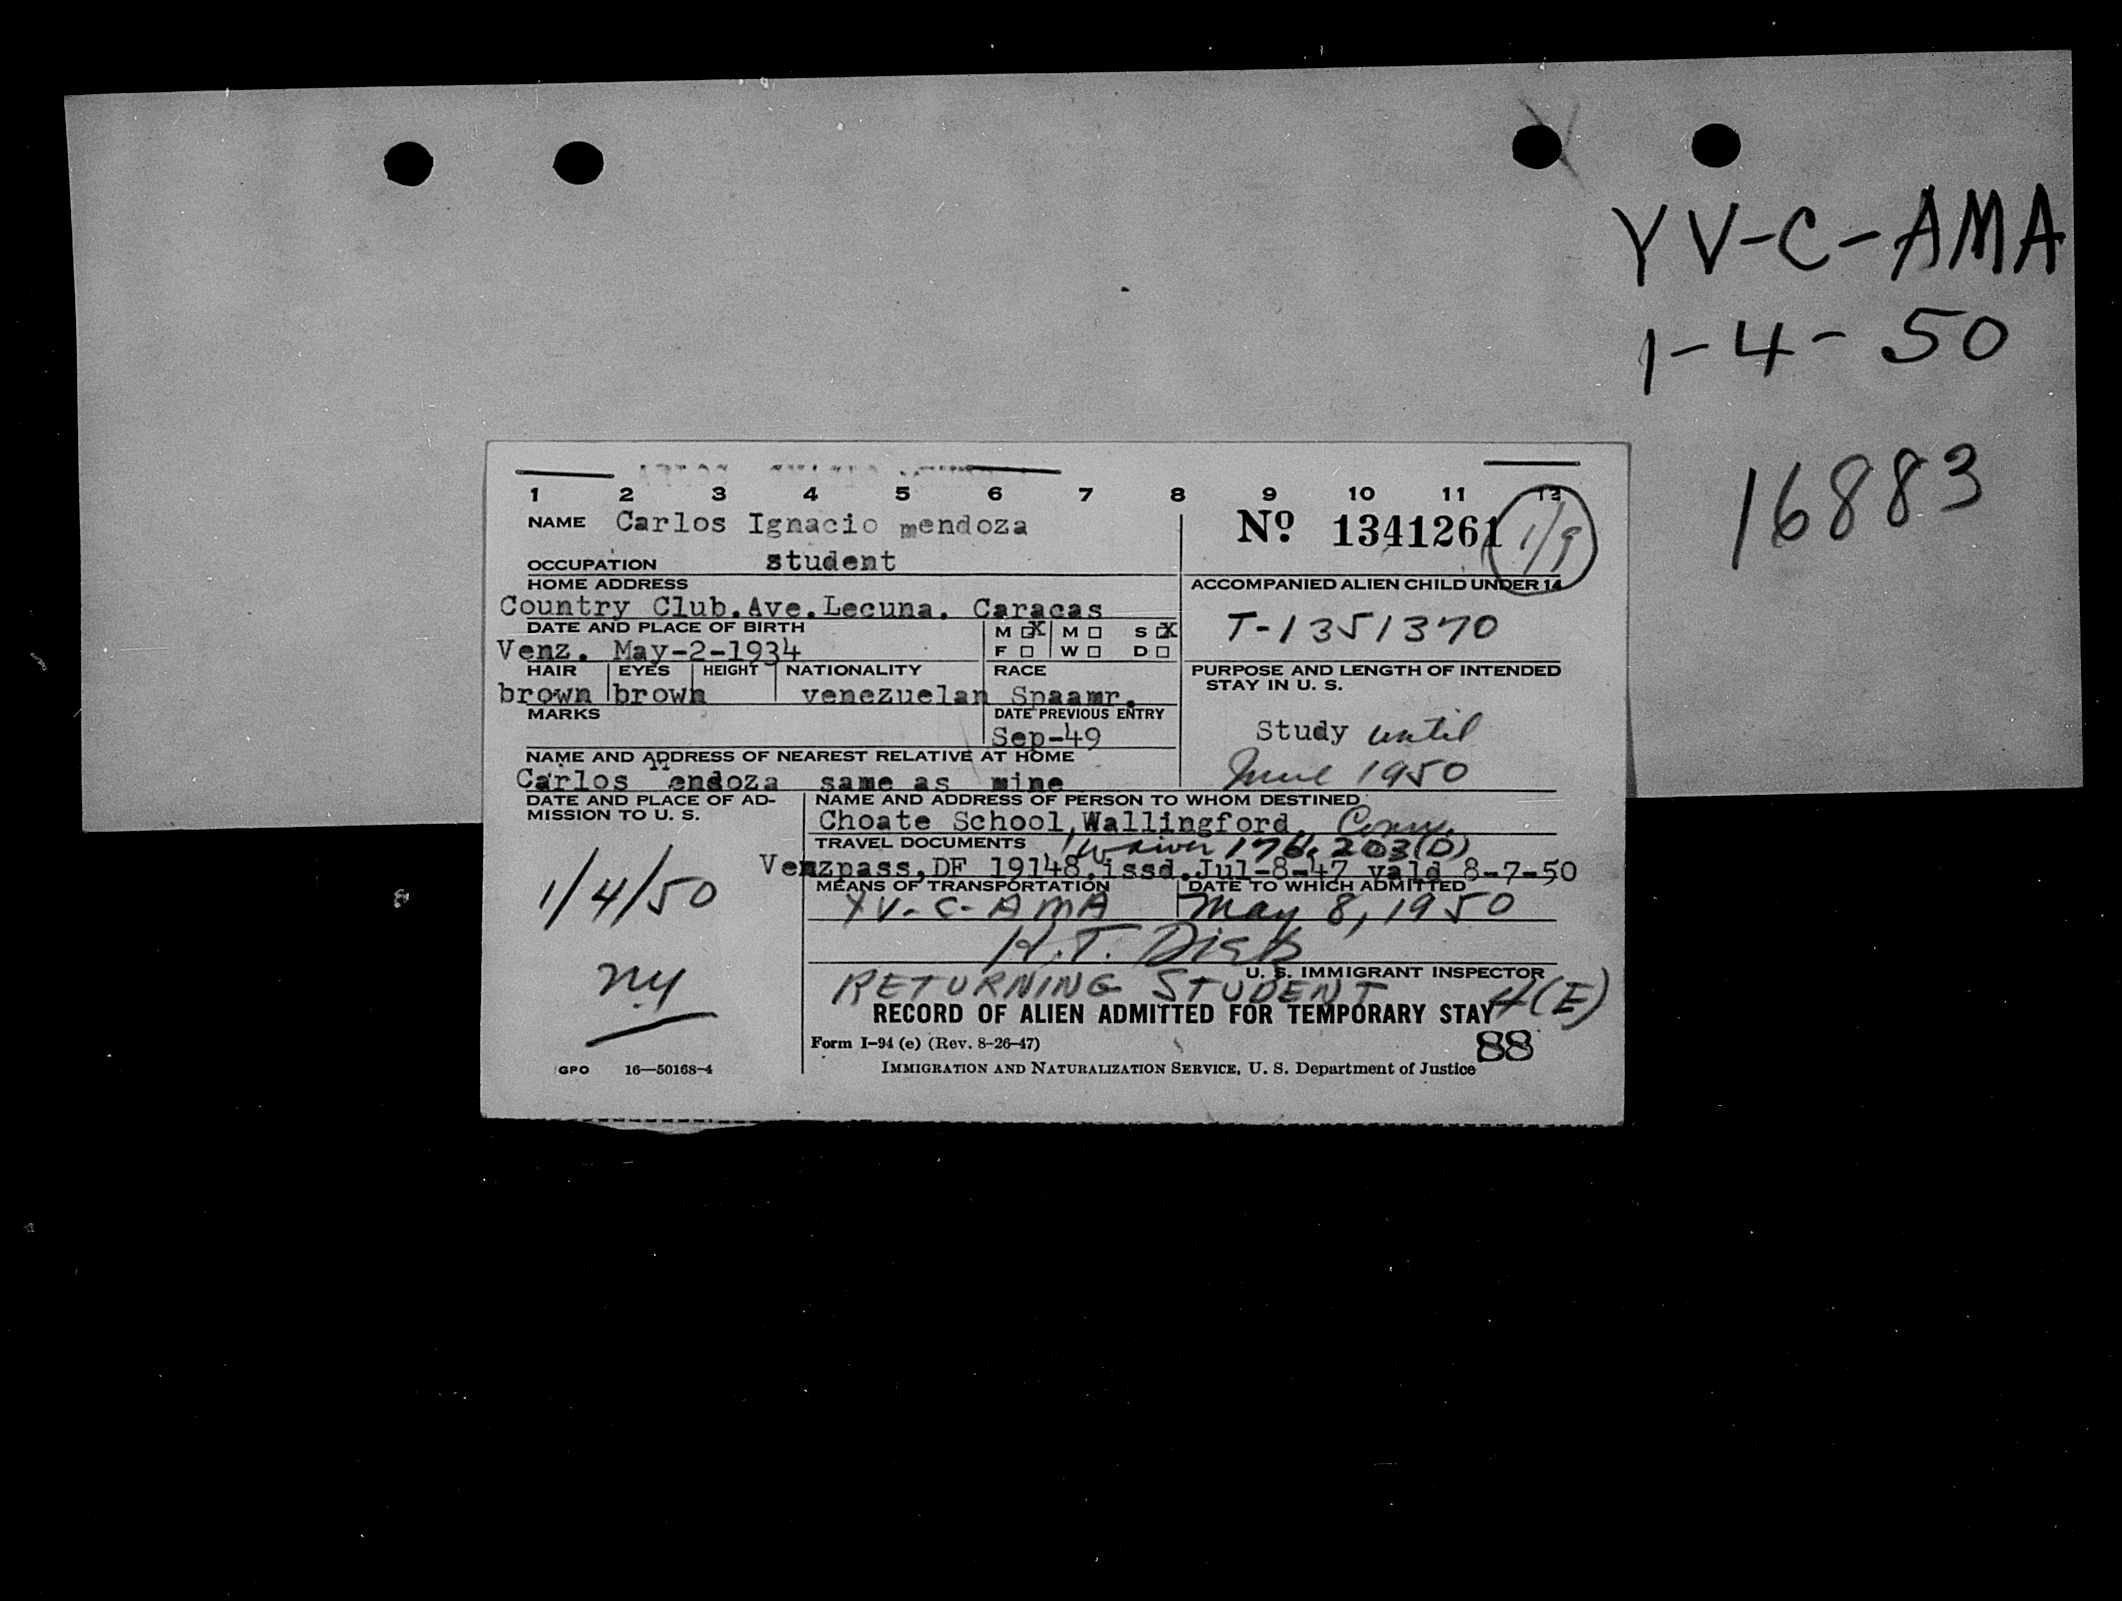 YV-C-AMA
1-4-50
16883
1 2 3 4 5 6 7 8 9 10 11 12
NAME Carlos Ignacio mendoza
Nº 1341261
1/9
OCCUPATION student
HOME ADDRESS
ACCOMPANIED ALIEN CHILD UNDER 14
Country Club.Ave.Lecuna. Caracas
T-1351370
DATE AND PLACE OF BIRTH
M ☒ M □ S ☒
Venz. May-2-1934
F □ W □ D □
HAIR EYES HEIGHT NATIONALITY RACE
PURPOSE AND LENGTH OF INTENDED
STAY IN U. S.
brown brown venezuelan Spaamr.
MARKS
DATE PREVIOUS ENTRY
Sep-49
Study until
June 1950
NAME AND ADDRESS OF NEAREST RELATIVE AT HOME
Carlos Mendoza same as mine
DATE AND PLACE OF AD-
MISSION TO U. S.
1/4/50
NY
NAME AND ADDRESS OF PERSON TO WHOM DESTINED
Choate School,Wallingford, Conn.
TRAVEL DOCUMENTS Waiver 176.203(D)
Venzpass,DF 19148.issd.Jul-8-47 vald 8-7-50
MEANS OF TRANSPORTATION DATE TO WHICH ADMITTED
YV-C-AMA May 8, 1950
H.T.
U. S. IMMIGRANT INSPECTOR
RETURNING STUDENT 4(E)
RECORD OF ALIEN ADMITTED FOR TEMPORARY STAY
Form I-94 (e) (Rev. 8-26-47)
88
GPO 16—50168-4
IMMIGRATION AND NATURALIZATION SERVICE, U. S. Department of Justice